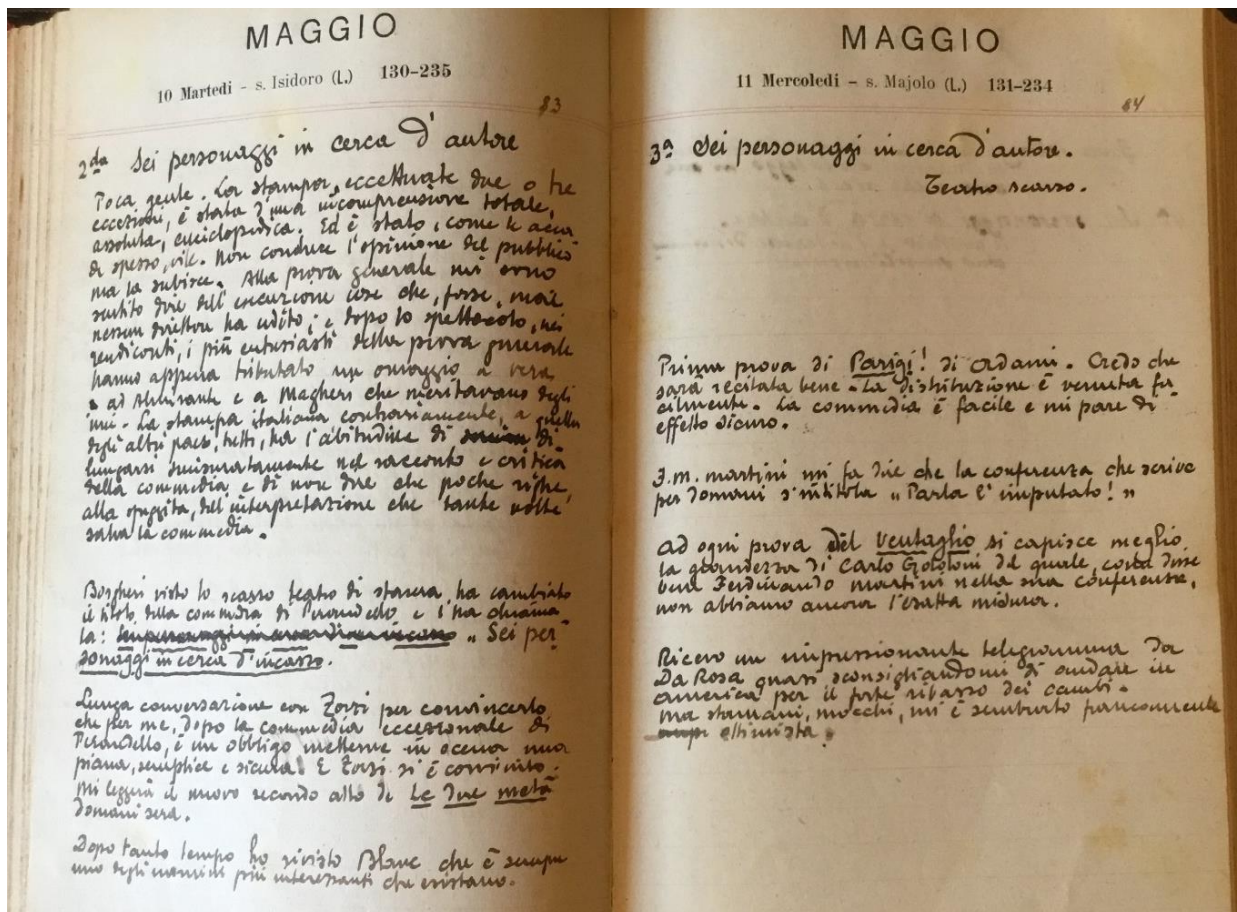 MAGGIO
10 Martedì – s. Isidoro (L.) 130-235
83
2da Sei personaggi in cerca d'autore
Poca gente. La stampa, eccettuate due o tre
eccezioni, è stata d'una incomprensione totale,
assoluta, enciclopedica. Ed è stato, come le acca
di spesso, vile. Non conduce l'opinione del pubblico
ma la subisce. Alla prova generale mi sono
sentito dire dell'esecuzione cose che, forse, mai
nessun direttore ha udito; e dopo lo spettacolo, nei
rendiconti, i più entusiasti della prova generale
hanno appena tributato un omaggio a Vera
e ad Almirante e a Magheri che meritavano degli
inni. La stampa italiana contrariamente, a quella
degli altri paesi, tutti, ha l'abitudine di di
lungarsi smisuratamente nel racconto e critica
della commedia e di non dire che poche righe,
alla sfuggita, dell'interpretazione che tante volte
salva la commedia.
Borgheri visto lo scarso teatro di stasera, ha cambiato
il titolo della commedia di Pirandello e l'ha chiama
ta: „ Sei per-
sonaggi in cerca d'incasso.
Lunga conversazione con Zorzi per convincerlo
che per me, dopo la commedia eccezionale di
Pirandello, è un obbligo metterne in scena una
piana, semplice e sicura. E Zorzi si è convinto.
Mi leggerà il nuovo secondo atto de Le due metà
domani sera.
Dopo tanto tempo ho rivisto Blanc che è sempre
uno degli uomini più interessanti che esistano.
MAGGIO
11 Mercoledì – s. Majolo (L.) 131-234
84
3a Sei personaggi in cerca d'autore.
Teatro scarso.
Prima prova di Parigi! di Adami. Credo che
sarà recitata bene. La distribuzione è venuta fa
cilmente. La commedia è facile e mi pare di
effetto sicuro.
F.M. Martini mi fa dire che la conferenza che scrive
per domani s'intitola „ Parla l'imputato! „
Ad ogni prova del Ventaglio si capisce meglio
la grandezza di Carlo Goldoni del quale, come disse
bene Ferdinando Martini nella sua conferenza,
non abbiamo ancora l'esatta misura.
Ricevo un impressionante telegramma da
Da Rosa quasi sconsigliandomi di andare in
America per il forte ribasso dei cambi.
Ma stamani, Mocchi, mi è sembrato francamente
ottimista.